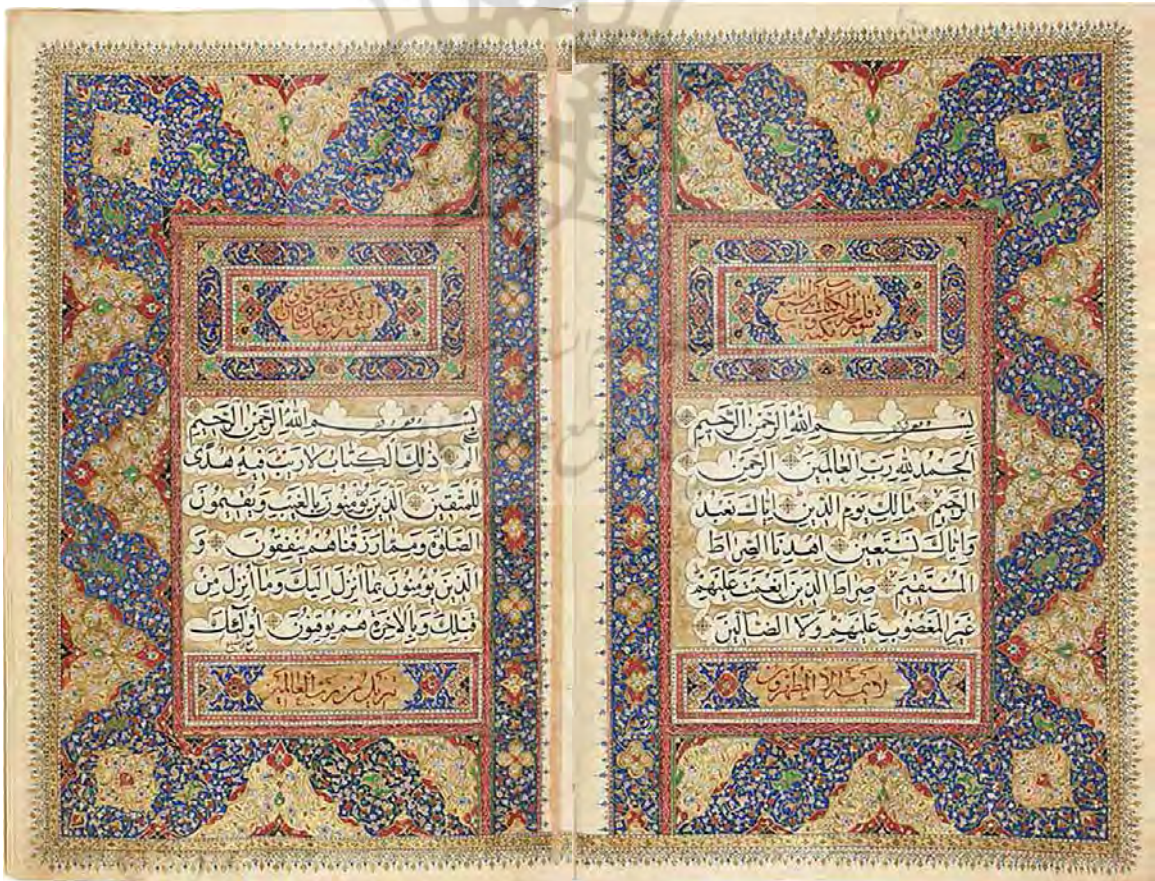 سورة فاتحة الكتاب سبع
بِسْمِ اللهِ الرَّحْمٰنِ الرَّحِيمِ
اَلْحَمْدُ لِلّٰهِ رَبِّ الْعَالَمِينَ الرَّحْمٰنِ
الرَّحِيمِ مَالِكِ يَوْمِ الدِّينِ اِيَّاكَ نَعْبُدُ
وَاِيَّاكَ نَسْتَعِينُ اِهْدِنَا الصِّرَاطَ
الْمُسْتَقِيمَ صِرَاطَ الَّذِينَ اَنْعَمْتَ عَلَيْهِمْ
غَيْرِ الْمَغْضُوبِ عَلَيْهِمْ وَلَا الضَّالِّينَ
لا يمسه الا المطهرون
بِسْمِ اللهِ الرَّحْمٰنِ الرَّحِيمِ
الم ذٰلِكَ الْكِتَابُ لَا رَيْبَ فِيهِ هُدًى
لِلْمُتَّقِينَ اَلَّذِينَ يُؤْمِنُونَ بِالْغَيْبِ وَيُقِيمُونَ
الصَّلٰوةَ وَمِمَّا رَزَقْنَاهُمْ يُنْفِقُونَ وَ
الَّذِينَ يُؤْمِنُونَ بِمَا اُنْزِلَ اِلَيْكَ وَمَا اُنْزِلَ مِنْ
قَبْلِكَ وَبِالْاٰخِرَةِ هُمْ يُوقِنُونَ اُولٰئِكَ
تنزيل من رب العالمين